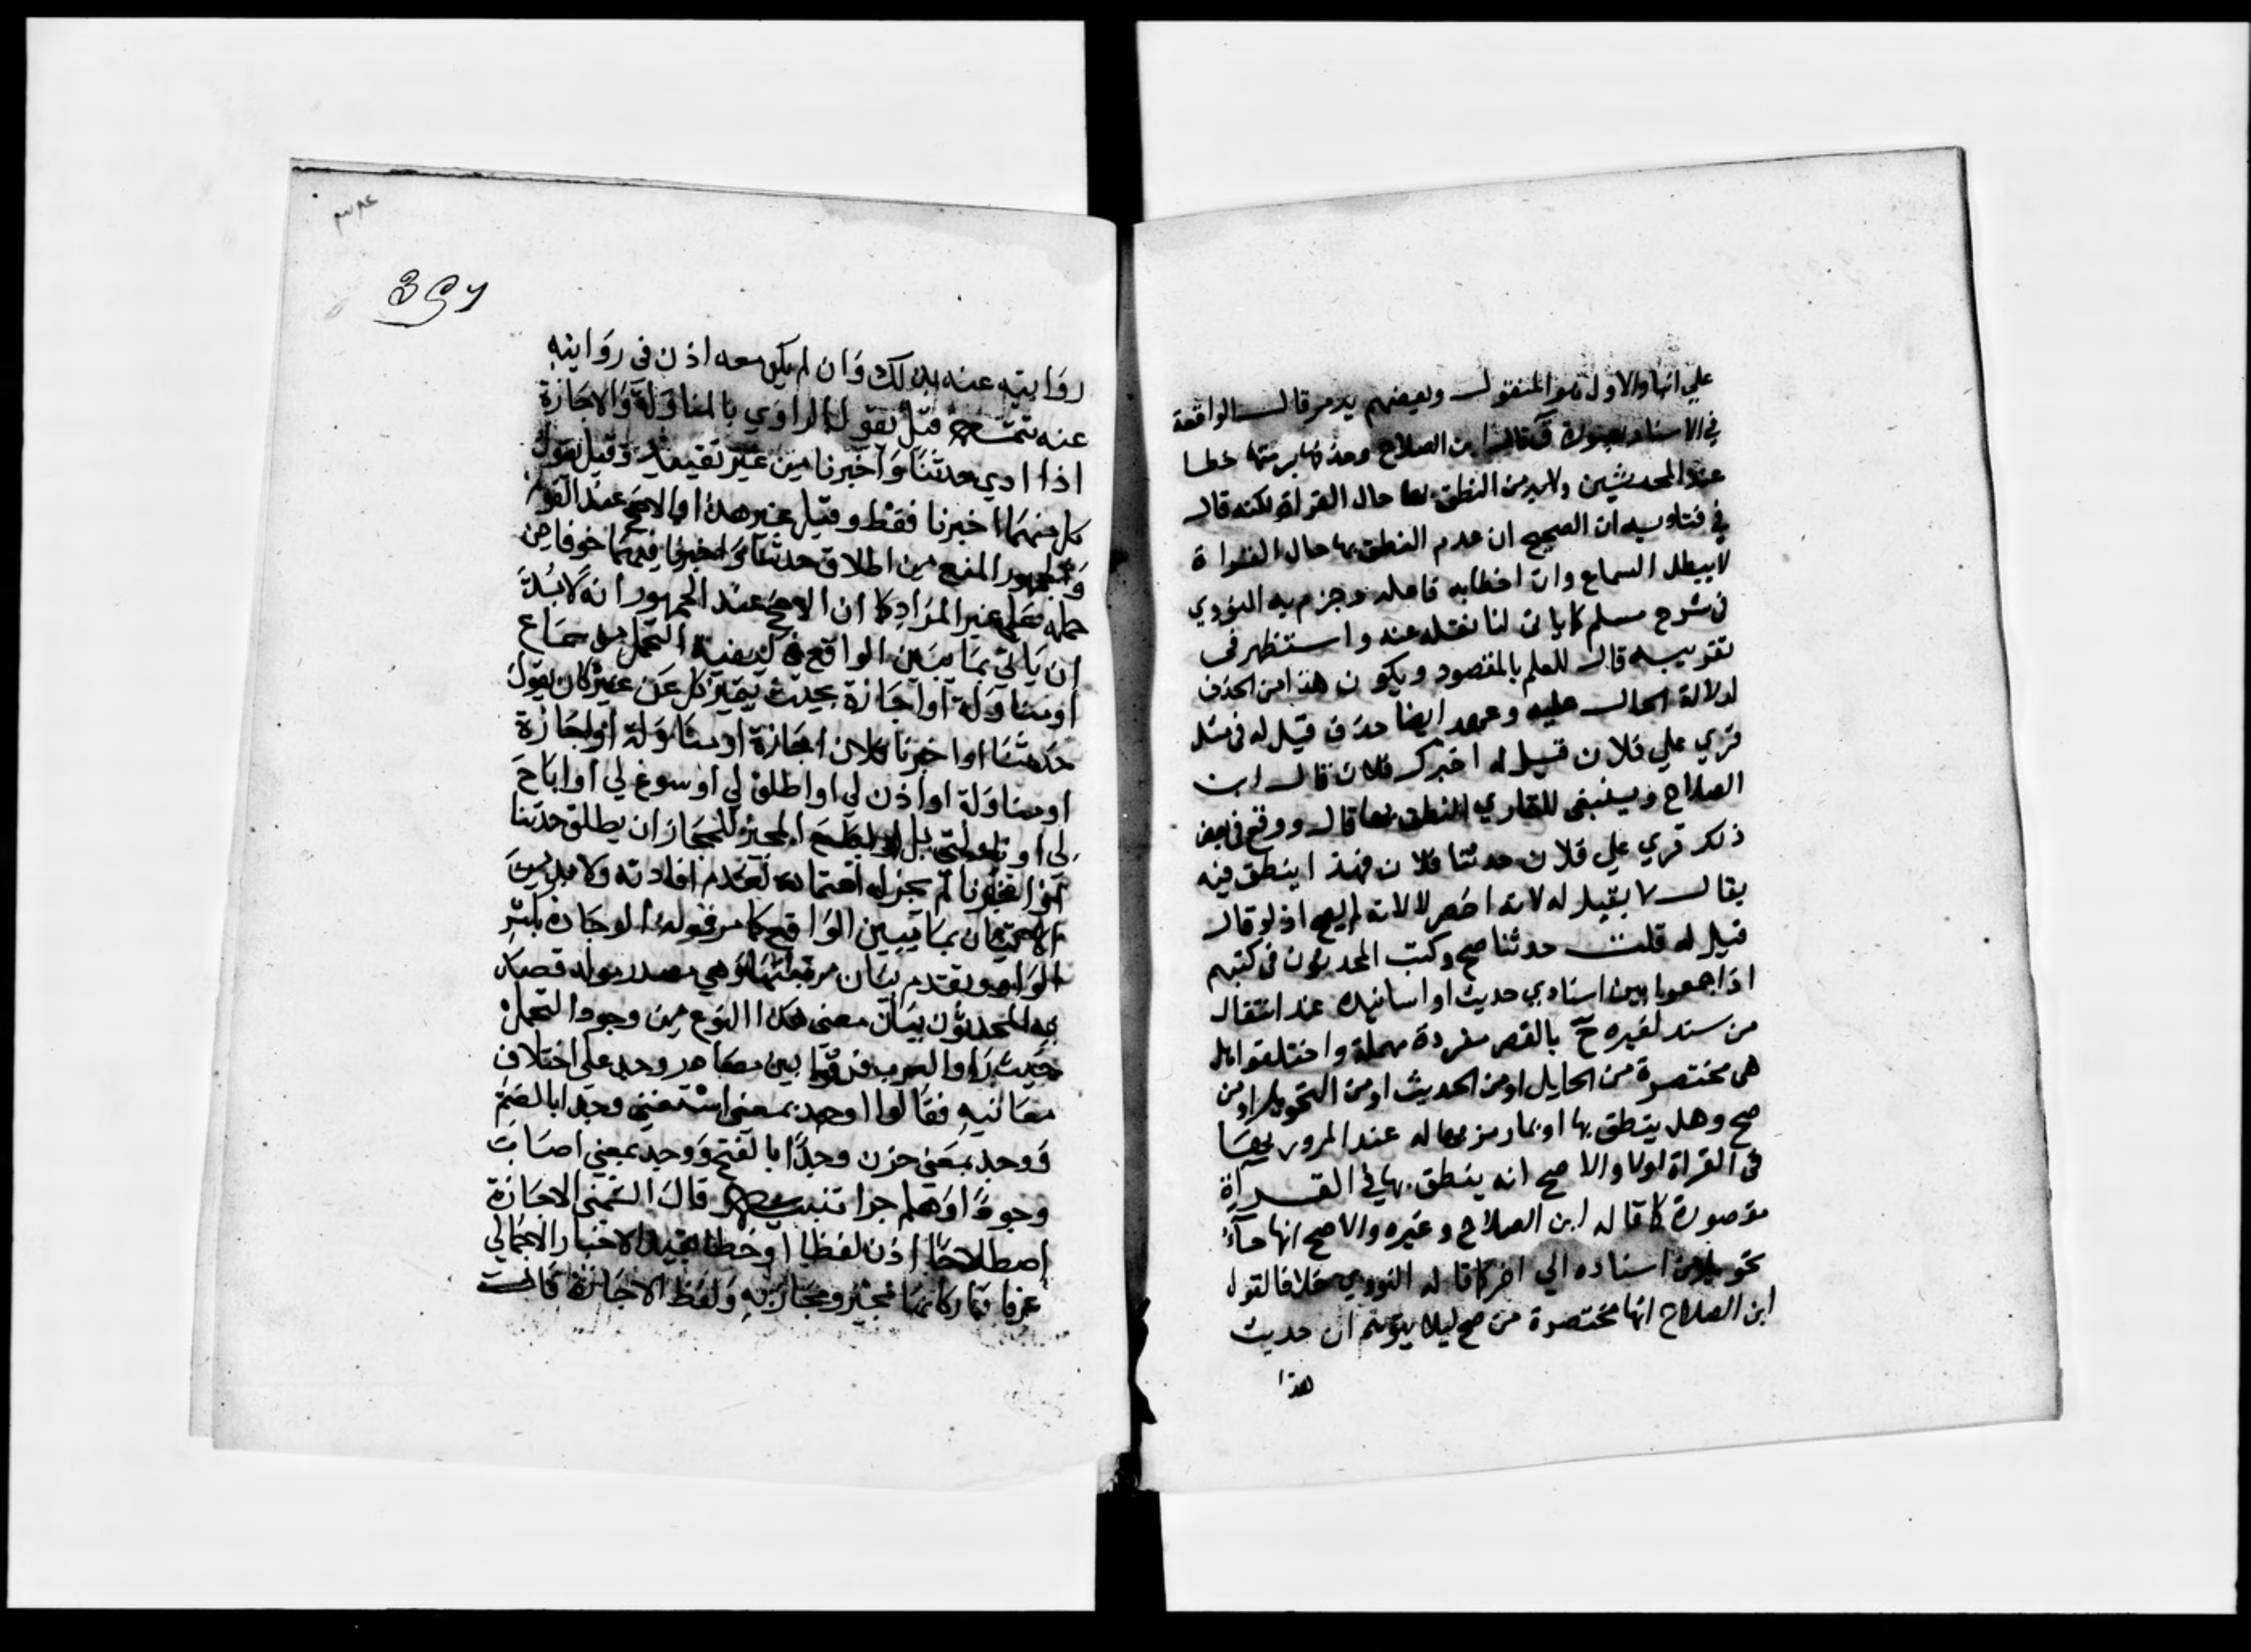 علي انها والاول هو المنقول وبعضهم يرمز قال الواقعة
في الاسناد بصورة ق قال ابن الصلاح وحذفها برمتها خطا
عند المحدثين ولابد من النطق بها حال القراة لكنه قال
في فتاويه ان الصحيح ان عدم النطق بها حال القراة
لا يبطل السماع وان اخطا به فاعله وجزم به النووي
في شرح مسلم كما ياتي لنا نقله عنه واستظهر في
تقريبه قال للعلم بالمقصود ويكون هذا من الحذف
لدلالة الحال عليه وعهد ايضا حذف قيل له في مثل
قري علي فلان قيل له اخبرك فلان قال ابن
الصلاح وينبغي للقاري النطق بها قال ووقع في بعض
ذلك قري علي فلان حدثنا فلان فهذا ينطق فيه
بقال لا بقيل له لانه اخصر لا لانه لم يصح اذ لو قال
قيل له قلت حدثنا صح وكتب المحدثون في كتبهم
اذا جمعوا بين اسنادي حديث او اسانيده عند انتقال
من سند لغيره ح بالقصر مفردة مهملة واختلفوا هل
هي مختصرة من الحايل او من الحديث او من التحويل او من
صح وهل ينطق بها او بما رمز بها له عند المرور بها
في القراة اولا والاصح انه ينطق بها في القراة
مقصورة كما قاله ابن الصلاح وغيره والاصح انها حاء
تحويل من اسناده الي اخر كما قاله النووي خلافا لقول
ابن الصلاح انها مختصرة من صح ليلا يتوهم ان حديث
هذا
روايته عنه بذلك وان لم يكن معه اذن في روايته
عنه تتمة قيل يقول الراوي بالمناولة والاجازة
اذا ادي حدثنا واخبرنا من غير تقييد وقيل يقول
كل منهما اخبرنا فقط وقيل غير هذا والاصح عند القوم
والجمهور المنع من اطلاق حدثنا واخبرنا فيهما خوفا من
حمله علي غير المراد كما ان الاصح عند الجمهور انه لابد
ان ياتي بما يبين الواقع في كيفية التحمل من سماع
او مناولة او اجازة بحيث يتميز كل عن غيره كان يقول
حدثنا او اخبرنا فلان اجازة او مناولة او اجازة
او مناولة او اذن لي او اطلق لي او سوغ لي او اباح
لي او ناولني بل لو اباح المجيز للمجاز ان يطلق حدثنا
او اخبرنا لم يجز له اعتماده لعدم افادته ولابد من
الاتيان بما يبين الواقع كما مر قوله الوجادة بكسر
الواو وتقدم بيان مرتبتها وهي مصدر مولد قصد
به المحدثون بيان معنى هذا النوع من وجوه التحمل
حيث راوا العرب فرقوا بين مصادر وجد علي اختلاف
معانيه فقالوا وجد بمعنى استغني وجدا بالضم
ووجد بمعني حزن وجدا بالفتح ووجد بمعني اصاب
وجودا وهلم جرا تنبيه قال الشمني الاجازة
اصطلاحا اذن لفظا او خطا يفيد الاخبار الاجمالي
عرفا فاركانها مجيز ومجاز به ولفظ الاجازة